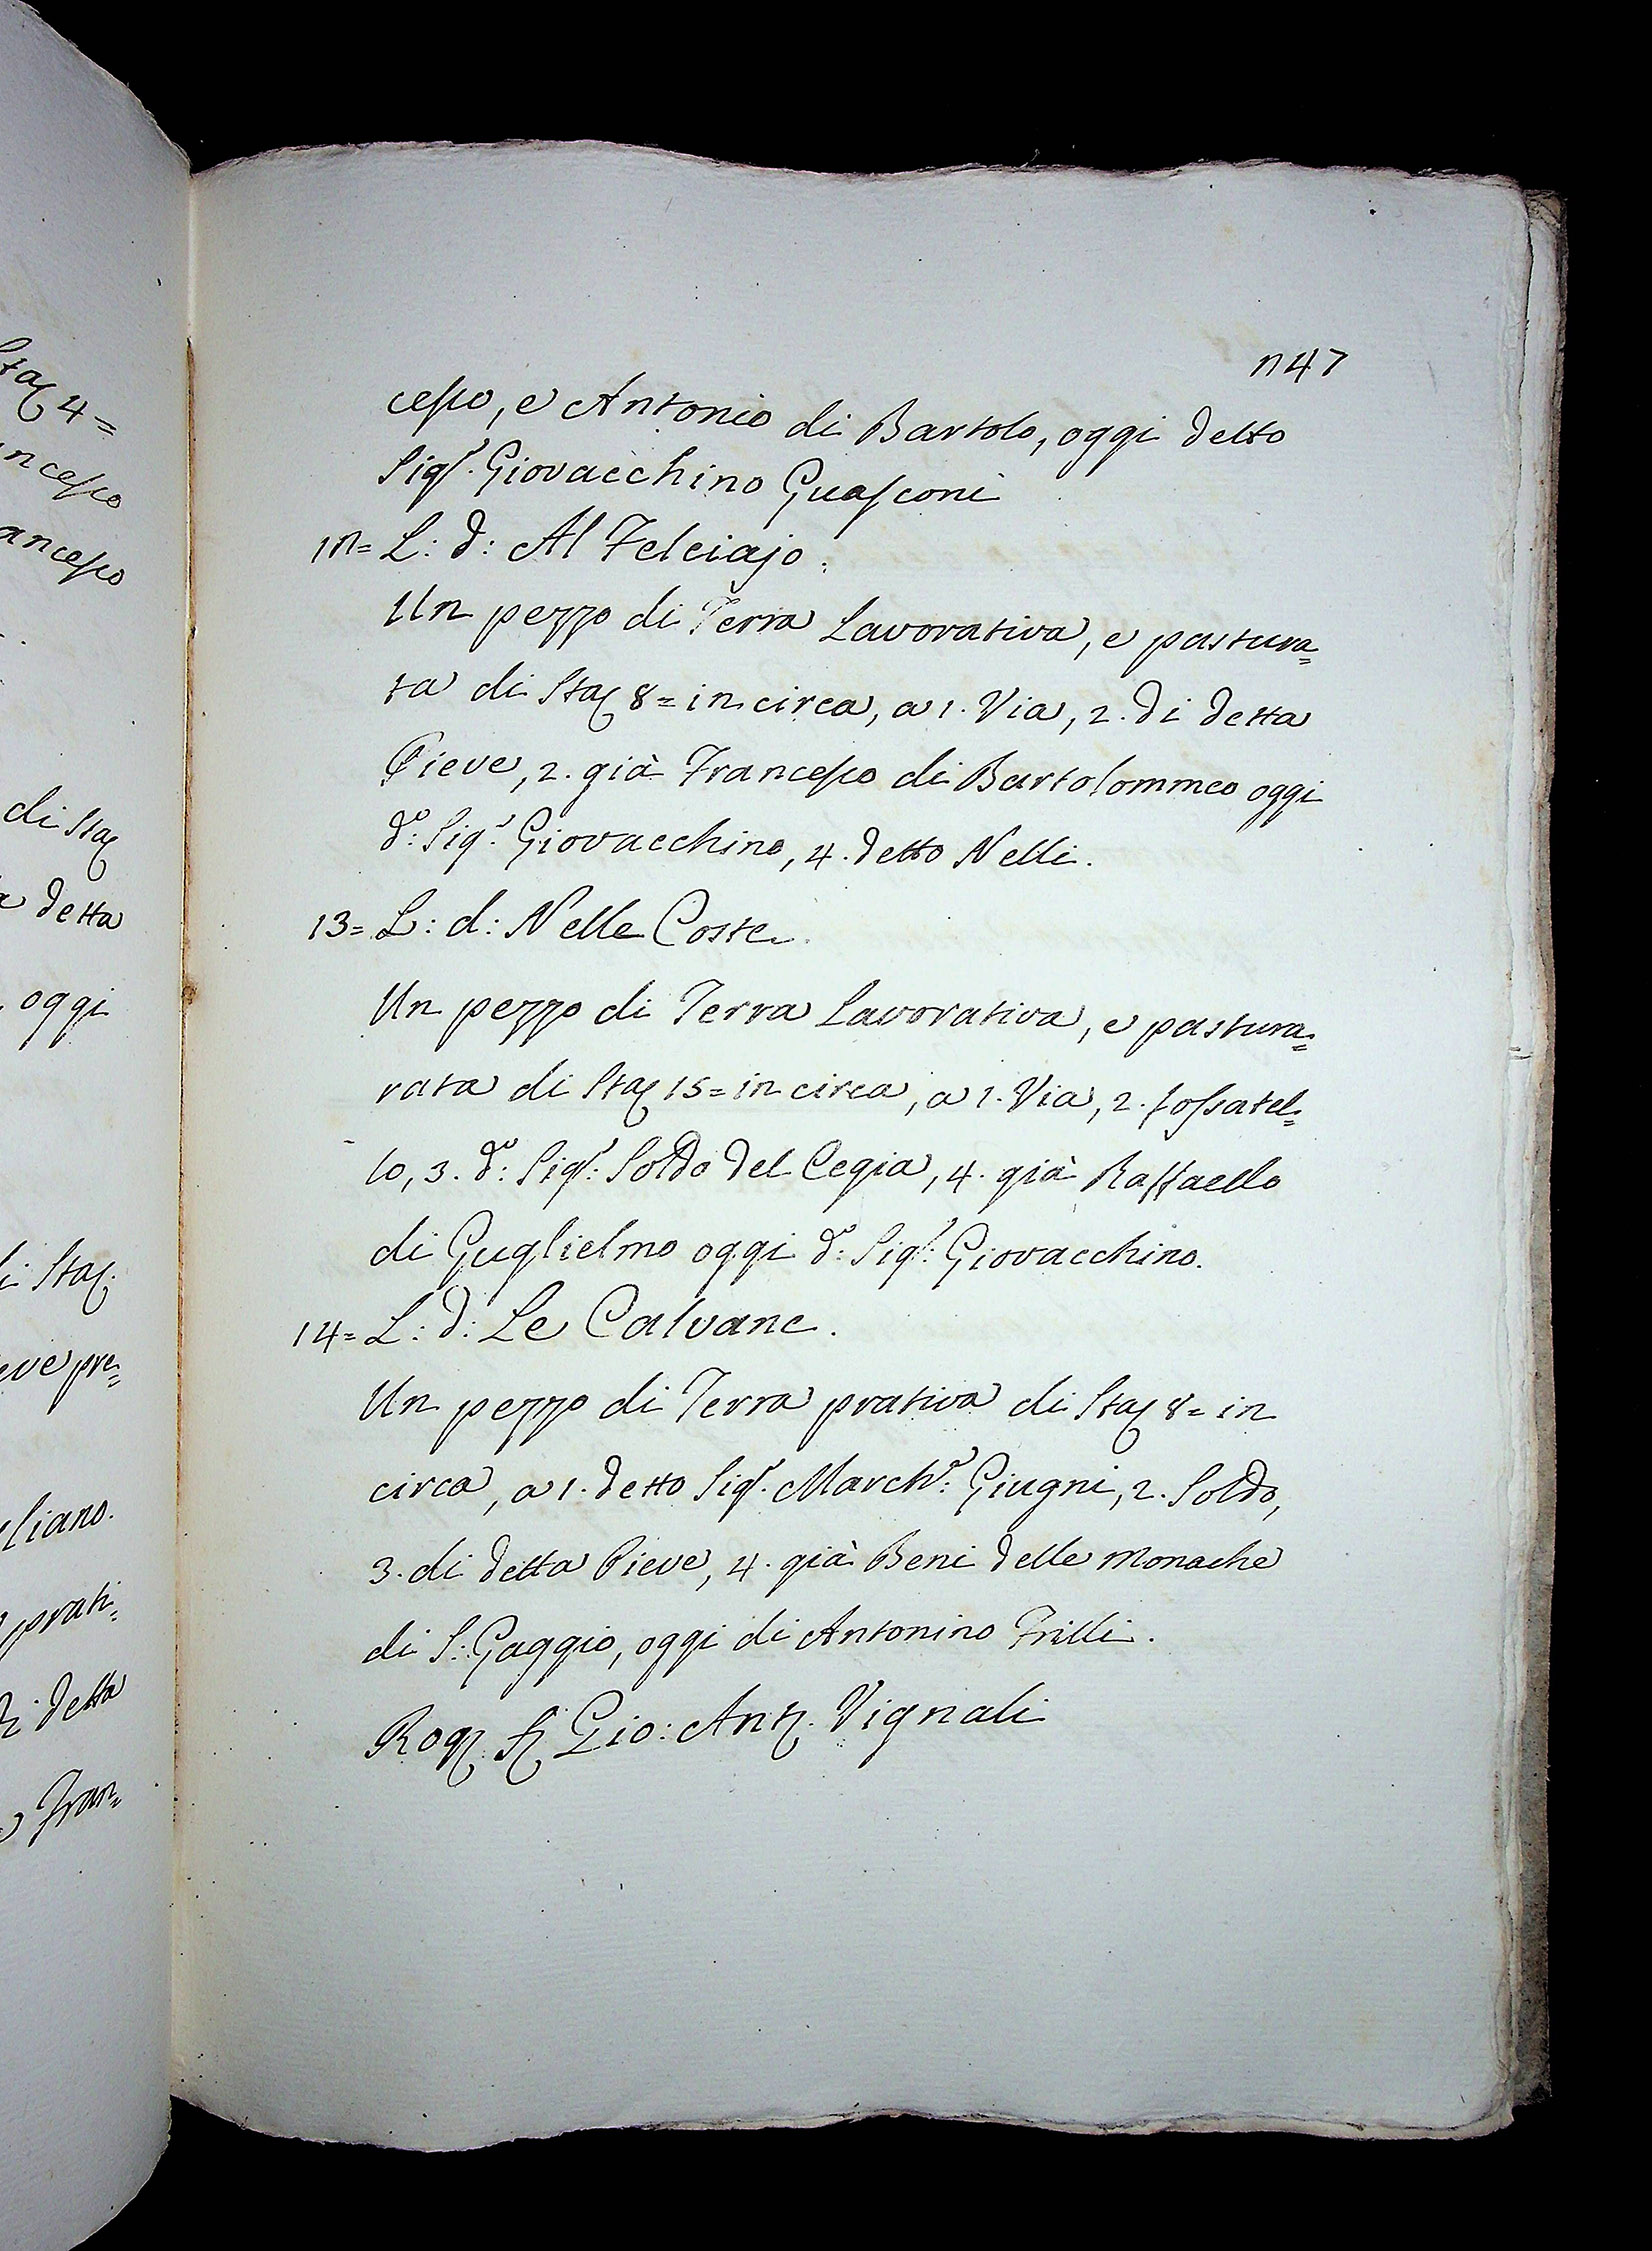 Staj 4=
ncesco
ancesco
di Staj
a detta
oggi
di Staj.
eve pre=
gliano.
prati=
di detta
Fran=
n47
cesco, e Antonio di Bartolo, oggi detto
Sigr. Giovacchino Guasconi
1n= L: d: Al Felciajo.
Un pezzo di Terra Lavorativa, e pastura=
ta di Staj 8= in circa, a 1. Via, 2. di detta
Pieve, 2. già Francesco di Bartolommeo oggi
do: Sigr. Giovacchino, 4. detto Nelli.
13= L: d: Nelle Coste.
Un pezzo di Terra Lavorativa, e pastura=
rata di Staj 15= in circa, a 1. Via, 2. fossatel=
lo, 3. do: Sigr: Soldo del Cegia, 4. già Raffaello
di Guglielmo oggi do: Sigr: Giovacchino.
14= L: d: Le Calvane.
Un pezzo di Terra prativa di Staj 8= in
circa, a 1. detto Sigr. Marche: Giugni, 2. Soldo,
3. di detta Pieve, 4. già Beni delle Monache
di S: Gaggio, oggi di Antonino Frilli.
Rog. Gio: Ant. Vignali